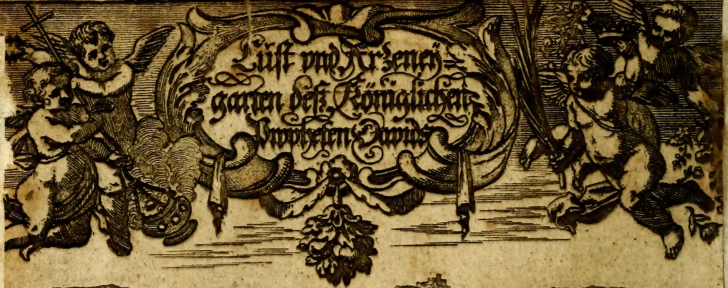 Lust vnd Arzeney=
garten deß Königlichen
Propheten Davids